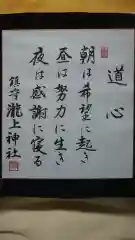 道心
朝は希望に起き
昼は努力に生き
夜は感謝に寝る
鎮守瀧上神社